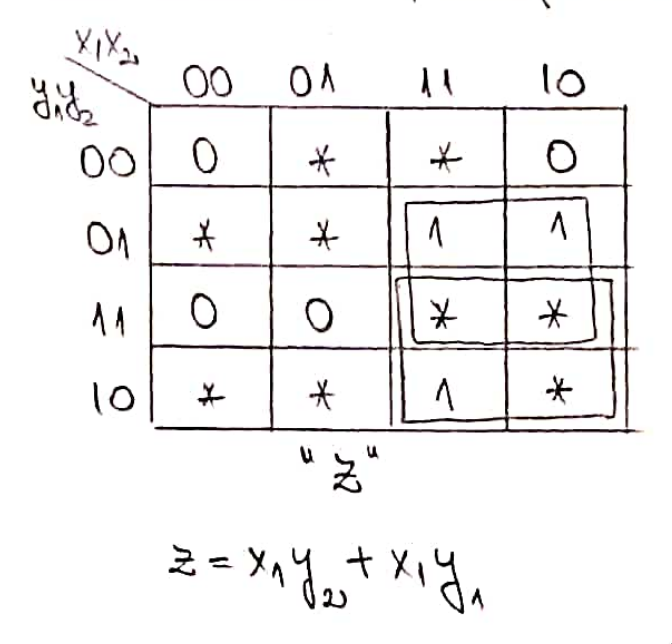 x₁x₂
y₁y₂ 00 01 11 10
00 0 * * 0
01 * * 1 1
11 0 0 * *
10 * * 1 *
"z"
z = x₁y₂ + x₁y₁